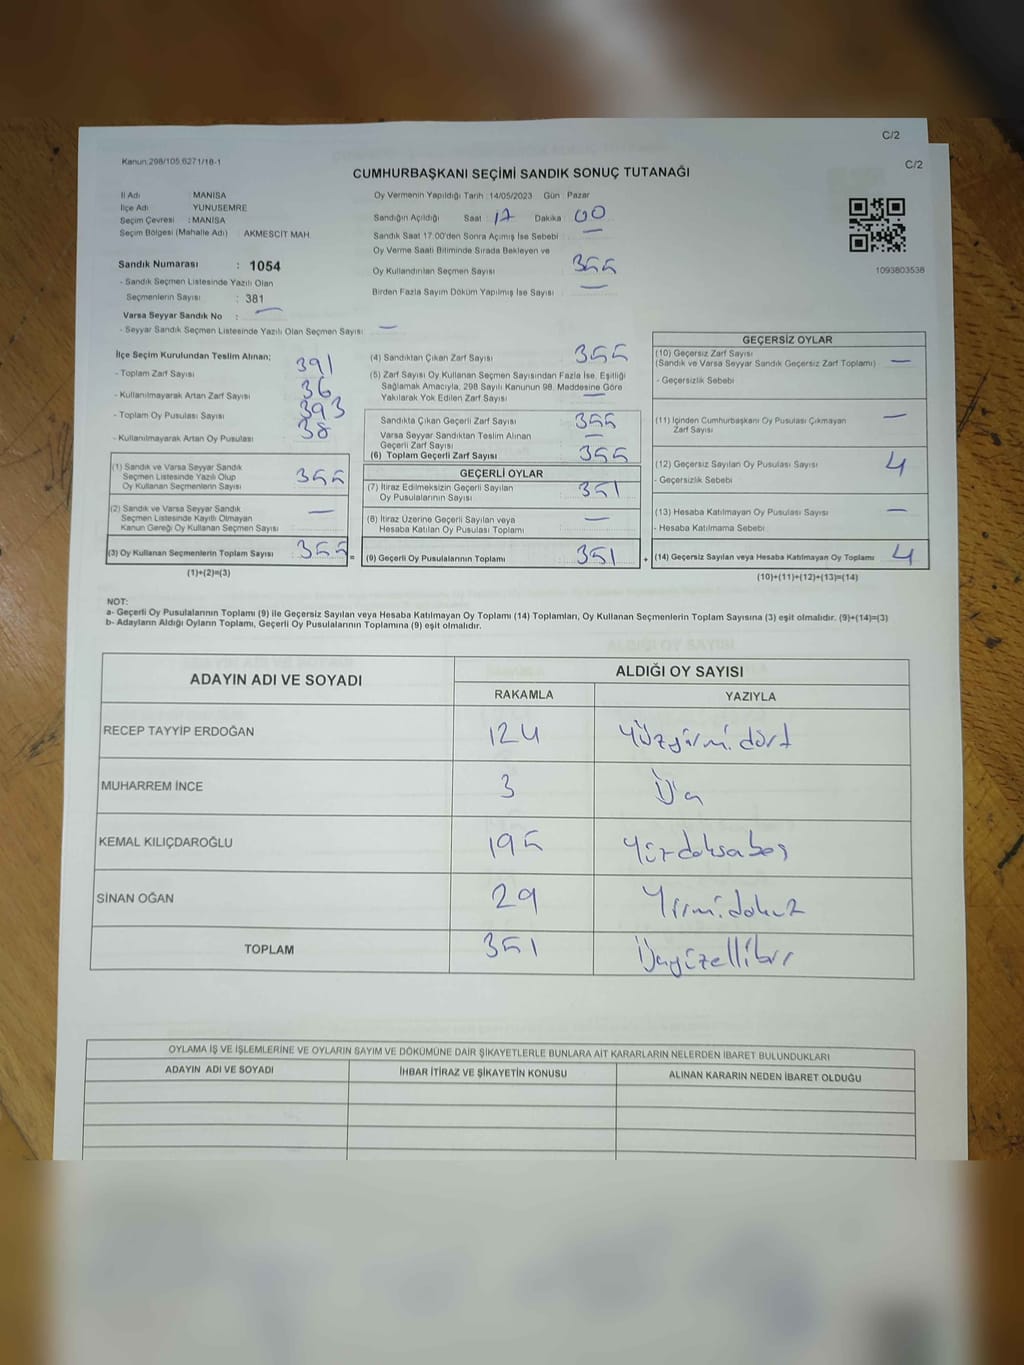 C/2
C/2
Kanun.298/105.6271/18-1
CUMHURBAŞKANI SEÇİMİ SANDIK SONUÇ TUTANAĞI
İl Adı : MANİSA
İlçe Adı : YUNUSEMRE
Seçim Çevresi : MANİSA
Seçim Bölgesi (Mahalle Adı) : AKMESCİT MAH.
Sandık Numarası : 1054
- Sandık Seçmen Listesinde Yazılı Olan
Seçmenlerin Sayısı : 381
Varsa Seyyar Sandık No : —
- Seyyar Sandık Seçmen Listesinde Yazılı Olan Seçmen Sayısı —
Oy Vermenin Yapıldığı Tarih : 14/05/2023 Gün : Pazar
Sandığın Açıldığı Saat : 17 Dakika 00
Sandık Saat 17.00'den Sonra Açılmış İse Sebebi : —
Oy Verme Saati Bitiminde Sırada Bekleyen ve
Oy Kullandırılan Seçmen Sayısı 355
Birden Fazla Sayım Döküm Yapılmış İse Sayısı —
1093803538
İlçe Seçim Kurulundan Teslim Alınan;
- Toplam Zarf Sayısı 391
- Kullanılmayarak Artan Zarf Sayısı 36
- Toplam Oy Pusulası Sayısı 393
- Kullanılmayarak Artan Oy Pusulası 38
(1) Sandık ve Varsa Seyyar Sandık
Seçmen Listesinde Yazılı Olup
Oy Kullanan Seçmenlerin Sayısı 355
(2) Sandık ve Varsa Seyyar Sandık
Seçmen Listesinde Kayıtlı Olmayan
Kanun Gereği Oy Kullanan Seçmen Sayısı —
(3) Oy Kullanan Seçmenlerin Toplam Sayısı 355 =
(1)+(2)=(3)
(4) Sandıktan Çıkan Zarf Sayısı 355
(5) Zarf Sayısı Oy Kullanan Seçmen Sayısından Fazla İse, Eşitliği
Sağlamak Amacıyla, 298 Sayılı Kanunun 98. Maddesine Göre
Yakılarak Yok Edilen Zarf Sayısı —
Sandıkta Çıkan Geçerli Zarf Sayısı 355
Varsa Seyyar Sandıktan Teslim Alınan
Geçerli Zarf Sayısı —
(6) Toplam Geçerli Zarf Sayısı 355
GEÇERLİ OYLAR
(7) İtiraz Edilmeksizin Geçerli Sayılan
Oy Pusulalarının Sayısı 351
(8) İtiraz Üzerine Geçerli Sayılan veya
Hesaba Katılan Oy Pusulası Toplamı —
(9) Geçerli Oy Pusulalarının Toplamı 351 +
GEÇERSİZ OYLAR
(10) Geçersiz Zarf Sayısı
(Sandık ve Varsa Seyyar Sandık Geçersiz Zarf Toplamı) —
- Geçersizlik Sebebi
(11) İçinden Cumhurbaşkanı Oy Pusulası Çıkmayan
Zarf Sayısı —
(12) Geçersiz Sayılan Oy Pusulası Sayısı 4
- Geçersizlik Sebebi
(13) Hesaba Katılmayan Oy Pusulası Sayısı —
- Hesaba Katılmama Sebebi
(14) Geçersiz Sayılan veya Hesaba Katılmayan Oy Toplamı 4
(10)+(11)+(12)+(13)=(14)
NOT:
a- Geçerli Oy Pusulalarının Toplamı (9) ile Geçersiz Sayılan veya Hesaba Katılmayan Oy Toplamı (14) Toplamları, Oy Kullanan Seçmenlerin Toplam Sayısına (3) eşit olmalıdır. (9)+(14)=(3)
b- Adayların Aldığı Oyların Toplamı, Geçerli Oy Pusulalarının Toplamına (9) eşit olmalıdır.
ADAYIN ADI VE SOYADI ALDIĞI OY SAYISI
RAKAMLA YAZIYLA
RECEP TAYYİP ERDOĞAN 124 Yüzyirmidört
MUHARREM İNCE 3 Üç
KEMAL KILIÇDAROĞLU 195 Yüzdoksabeş
SİNAN OĞAN 29 Yirmidokuz
TOPLAM 351 Üçyüzellibir
OYLAMA İŞ VE İŞLEMLERİNE VE OYLARIN SAYIM VE DÖKÜMÜNE DAİR ŞİKAYETLERLE BUNLARA AİT KARARLARIN NELERDEN İBARET BULUNDUKLARI
ADAYIN ADI VE SOYADI İHBAR İTİRAZ VE ŞİKAYETİN KONUSU ALINAN KARARIN NEDEN İBARET OLDUĞU